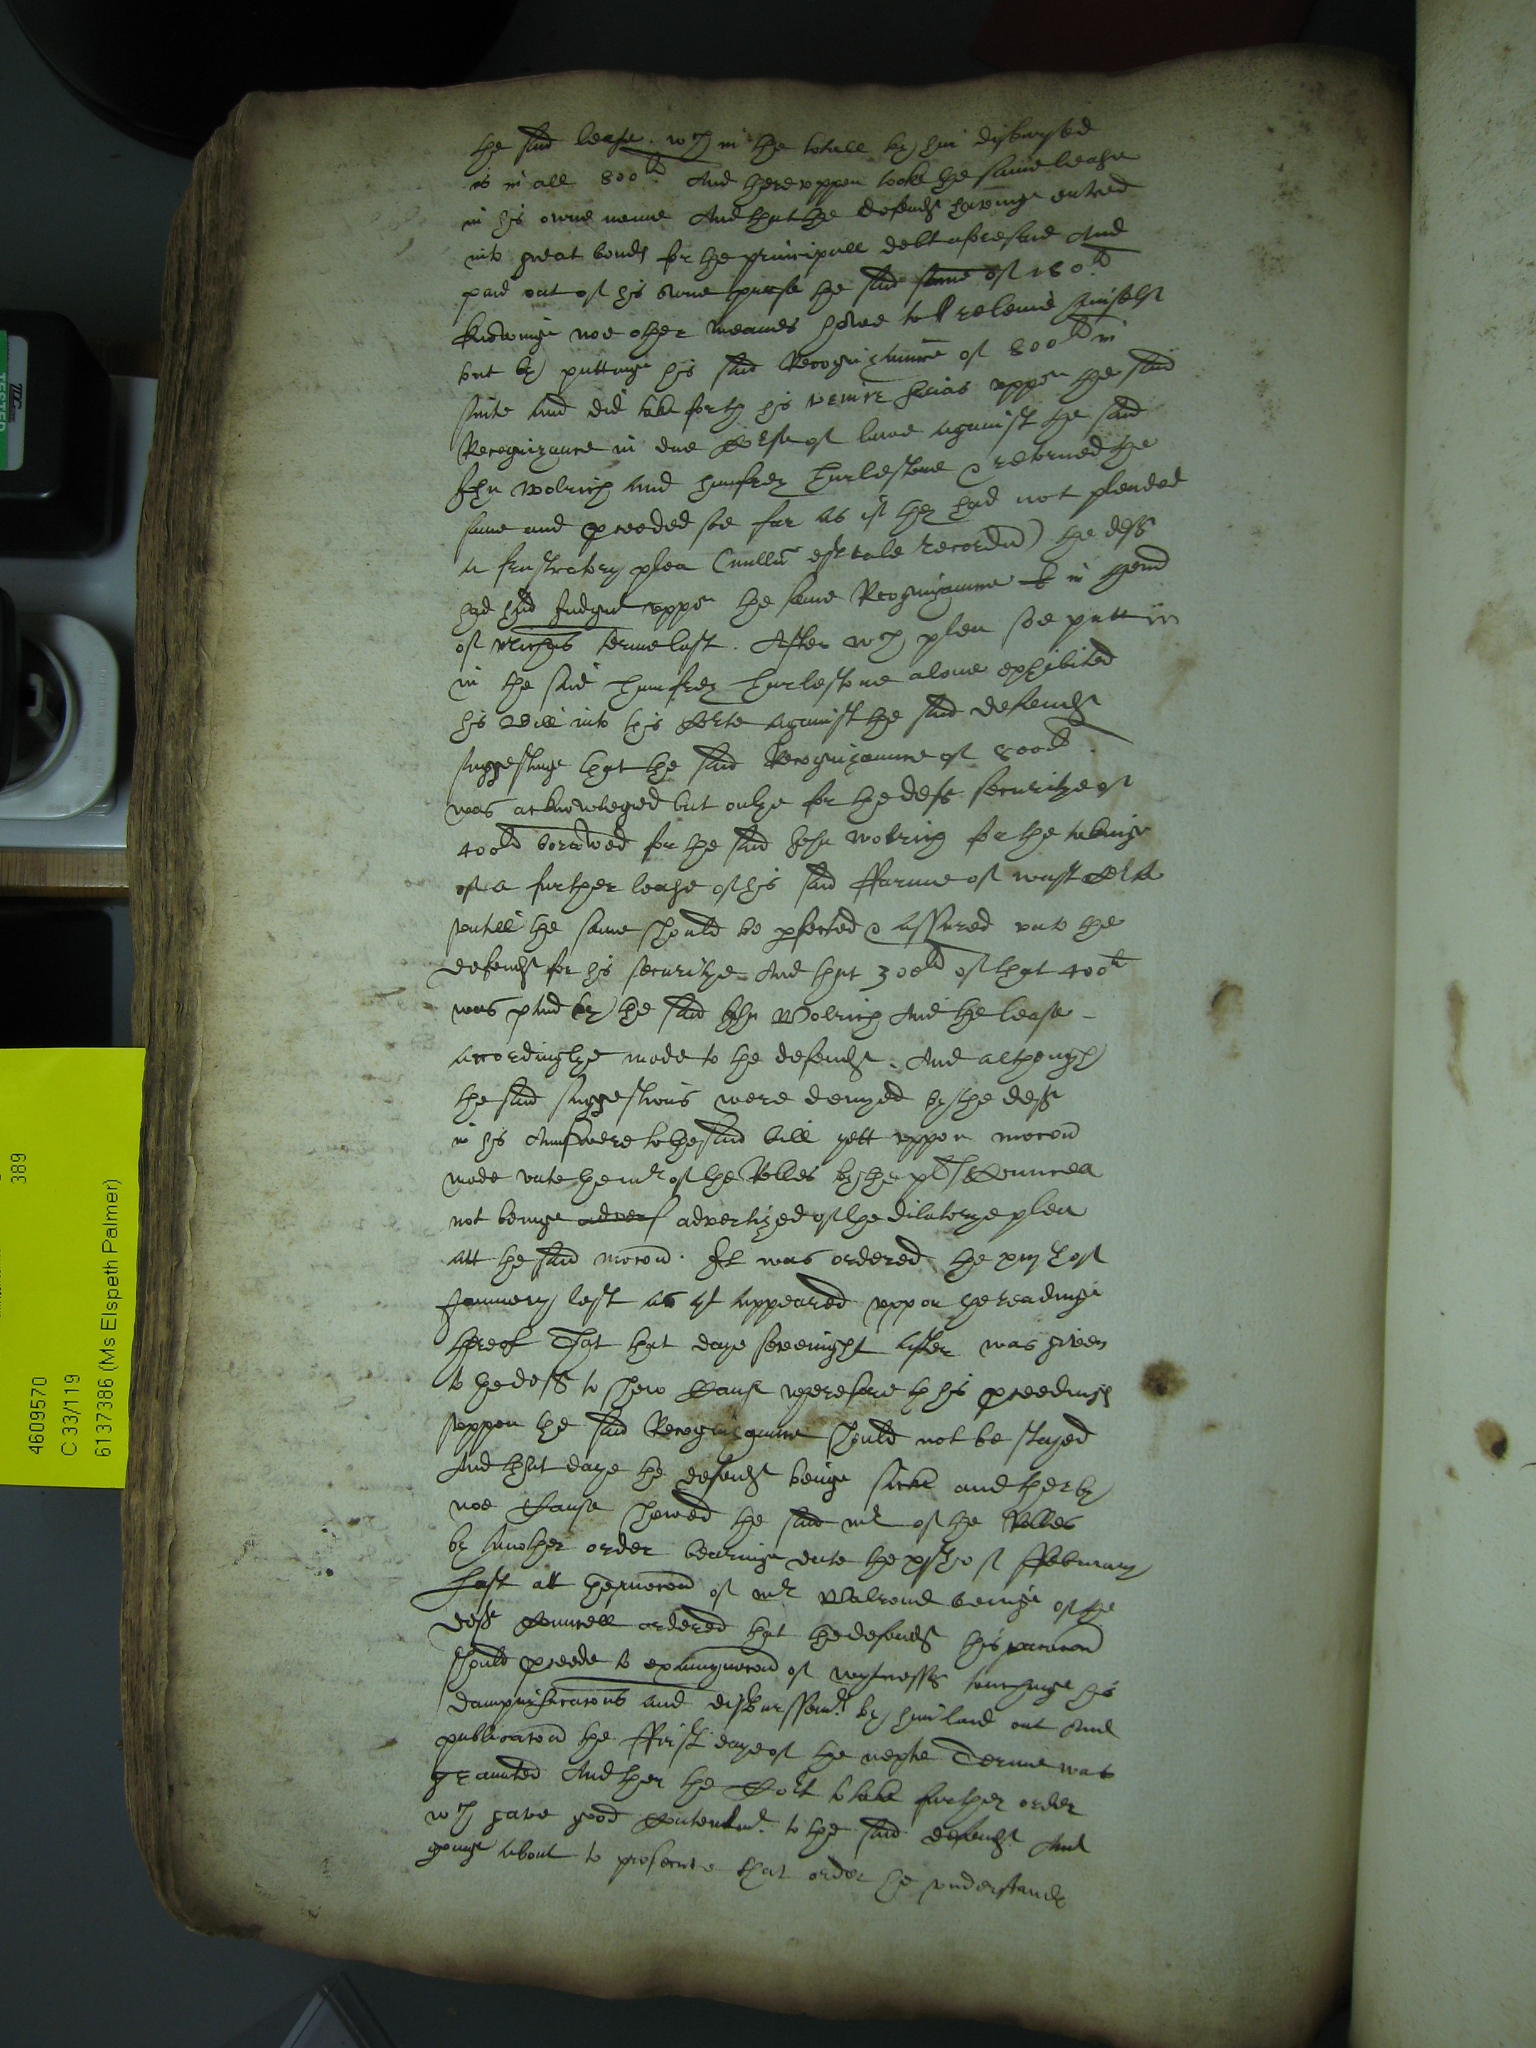 the said lease. wch in the totall by him disbursed
is in all 800li And thereuppon tooke the same lease
in his owne name And that the defendt havinge entred
into great bonds for the principall debt aforesaid And
paid out of his owne purse the said some of 180li
knowinge noe other meanes howe to releeve himselfe
but by puttinge his said Recognizance of 800li in
suite And did take forth his venire facias uppon the said
Recognizance in due course of lawe against the said
John Wolrich And Humfrey Hurlestone & retorned the
same and proceeded soe far as if they had not pleaded
a frustratory plea (nullu est tale recordu) the deft
had had Judgmt uppon the same Recognizance in
of Michas terme last. After wch plea soe putt in
in the said Humfrey Hurlestone alone exhibited
his Bill into this Corte against the said defendt
suggestinge that the said Recognizance of 800li
was acknowledged but onlye for the defts securitye of
400li borrowed for the said John Wolrich for the takinge
of a further lease of his said fferme of
untill the same should be perfected & assured unto the
defendt for his securitye And that 300li of that 400li
was paid by the said John Wolrich And the lease
accordinglye made to the defendt. And although
the said suggestions were denyed by the deft
in his Aunswere to the said bill yett uppon mocon
made unto the mr of the Rolles by the plts Councell
not beinge adver advertized of the dilatorye plea
att the said mocon. It was ordered the of
January last as yt appeared uppon the readinge
thereof That that daye sevenight after was given
to the deft to shew cause wherefore his proceedings
uppon the said Recognizance should not be stayed
And that daye the defendt beinge sicke and therby
noe Cause shewed the said mr of the Rolles
by Another order bearinge date the of ffebruary
last att the mocon of mr Walrond beinge of the
defts Councell ordered that the defendt his
should proceede to examynacon of wytnesses touchinge his
dampnificacons and disbursemts by him laid out And
publicacon the ffirst daye of the nexte Terme was
graunted And then the Cort to take further order
wch gave good contentmt to the said defendt And
goinge about to prosecute that order he understands
4609570
C 33/119
6137386 (Ms Elspeth Palmer)
389